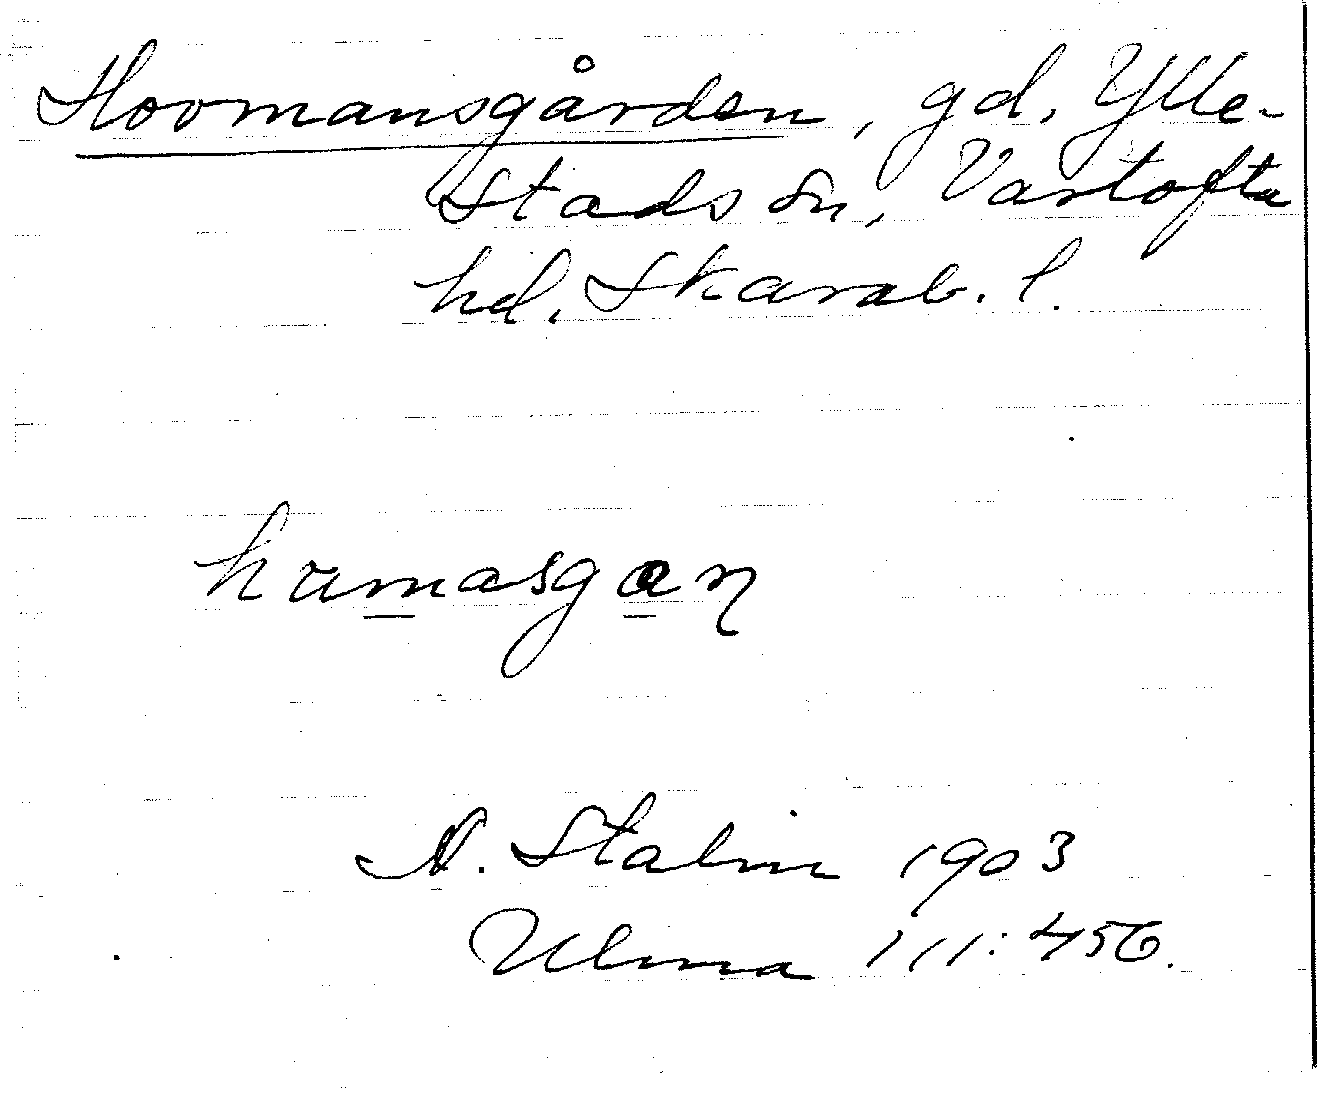 Hovmansgården, gd, Ylle-
stads sn, Vartofta
hd, Skarab. l.
hamasgan
N. Stalin 1903
Ulma 111:456.